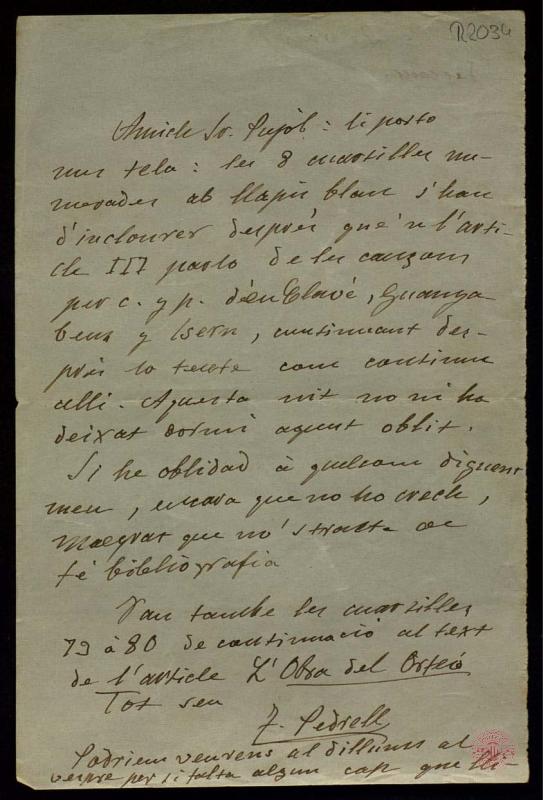 R2034
Amich Sr. Pujol: li porto
mes tela: les 8 cuartilles nu-
merades ab llapis blau s'han
d'inclourer després que'n l'arti-
cle III parlo de les cançons
per c. y p. d'en Clavé, Guanya-
bens y Isern, continuant des-
prés lo texte com continua
alli. Aquesta nit no m'ha
deixat dormi aquest oblit.
Si he oblidad à quelcom diguens
meu, encara que no ho crech,
Malgrat que no's tracta de
fé bibliografia
Van també les cuartilles
79 à 80 de continuació al text
de l'article L'Obra del Orfeó
Tot seu
F. Pedrell
Podriem veurens al dillluns al
vespre per si falta algun cap que lli-